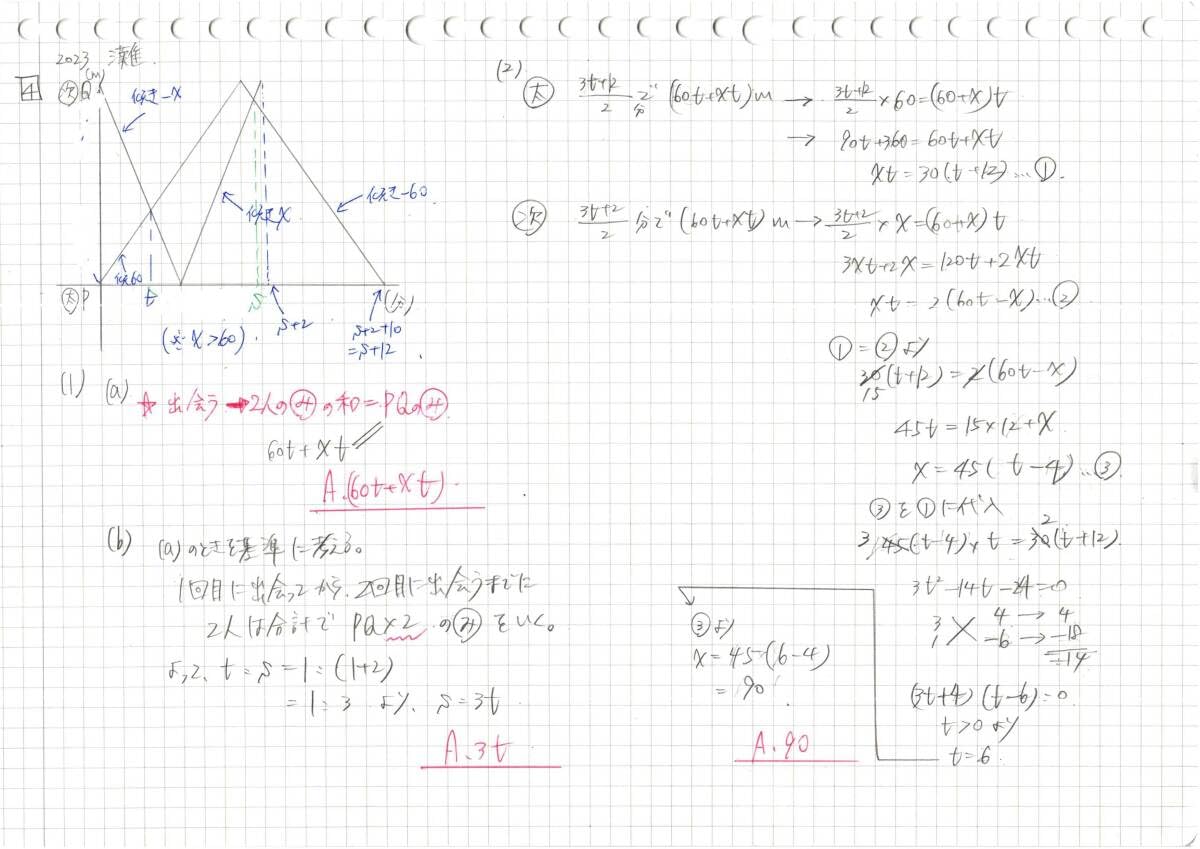 2023 灘
4
次Q (m)
傾き-x
傾き-60
傾きx
傾き60
太P
t
s
s+2
(分)
s+2+10
=s+12
(x>60)
(1) (a) ☆出会う→2人のみの和=PQのみ
60t+xt
A.(60t+xt)
(b) (a)のときを基準に考える。
1回目に出会ってから、2回目に出会うまでに
2人は合計で PQ×2 のみをいく。
よって、t:s=1:(1+2)
=1:3 より、s=3t
A.3t
(2)
太 3t+12/2 分で (60t+xt)m → 3t+12/2×60=(60+x)t
→ 90t+360=60t+xt
xt=30(t+12)…①.
次 3t+2/2 分で (60t+xt)m → 3t+2/2×x=(60+x)t
3xt+2x=120t+2xt
xt=2(60t-x)…②
①=②より
30(t+12)=2(60t-x)
15
45t=15×12+x
x=45(t-4)…③
③を①に代入
2
3 45(t-4)×t=30(t+12)
3t²-14t-24=0
3 4→4
1 -6→-18
-14
(3t+4)(t-6)=0
t>0より
t=6
③より
x=45(6-4)
=90
A.90